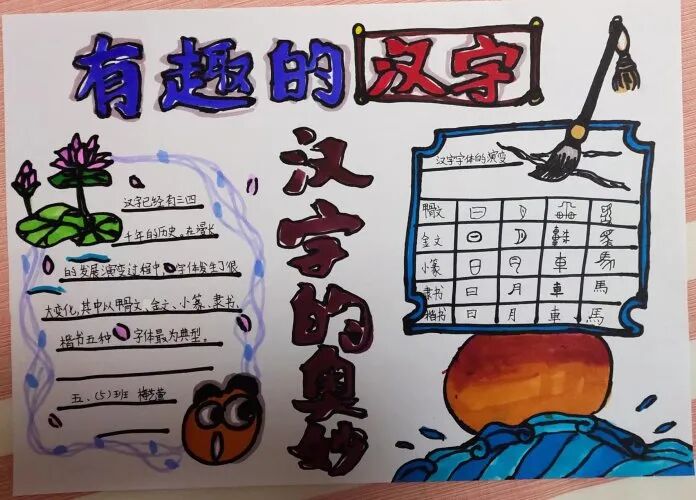 有趣的汉字
汉字的奥妙
汉字已经有三四
千年的历史。在漫长
的发展演变过程中,字体发生了很
大变化,其中从甲骨文、金文、小篆、隶书、
楷书五种字体最为典型。
五、(5)班
汉字字体的演变
甲骨文
金文
小篆 日 月 車 馬
隶书 日 月 車 馬
楷书 日 月 車 馬